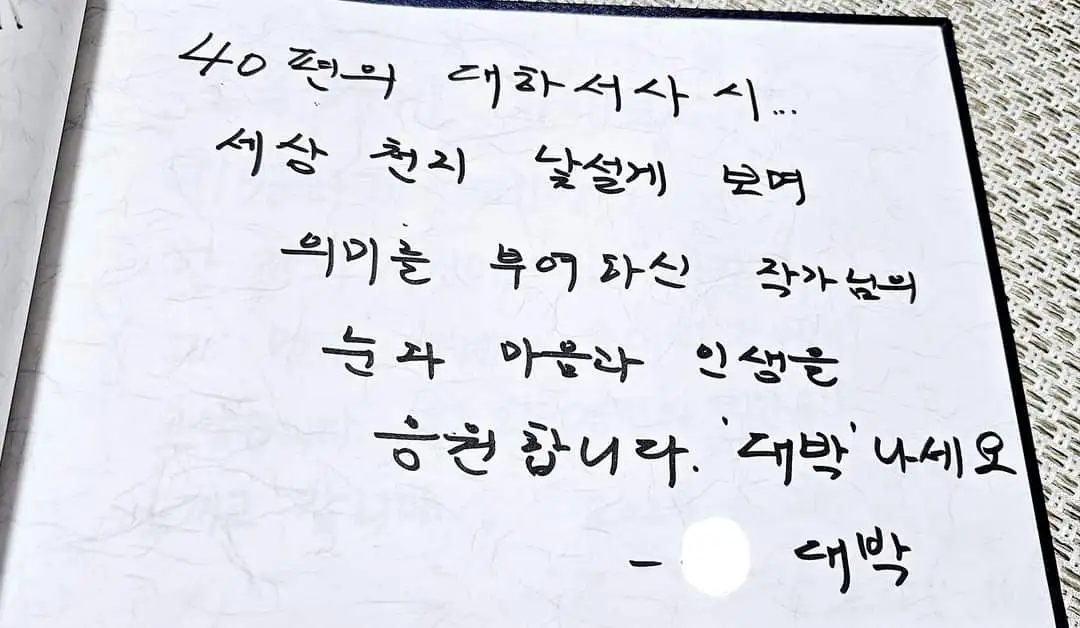 40편의 대하서사 시...
세상 천지 낯설게 보며
의미를 부여하신 작가님의
눈과 마음과 인생을
응원합니다. '대박' 나세요
- 대박